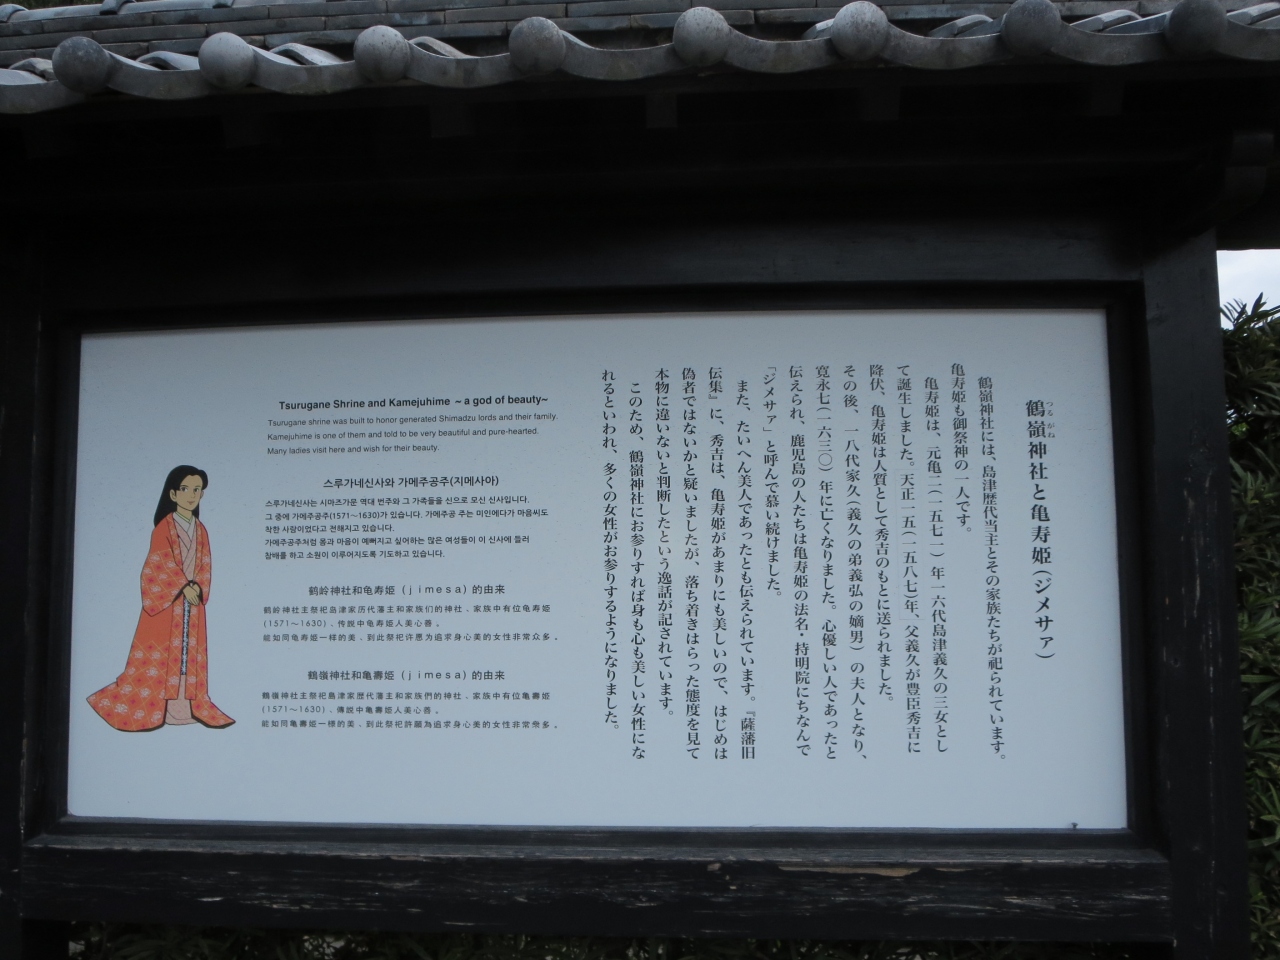 鶴嶺神社と亀寿姫（ジメサァ）
つるがね
鶴嶺神社には、島津歴代当主とその家族たちが祀られています。
亀寿姫も御祭神の一人です。
亀寿姫は、元亀二（一五七一）年一六代島津義久の三女とし
て誕生しました。天正一五（一五八七）年、父義久が豊臣秀吉に
降伏、亀寿姫は人質として秀吉のもとに送られました。
その後、一八代家久（義久の弟義弘の嫡男）の夫人となり、
寛永七（一六三〇）年に亡くなりました。心優しい人であったと
伝えられ、鹿児島の人たちは亀寿姫の法名・持明院にちなんで
「ジメサァ」と呼んで慕い続けました。
また、たいへん美人であったとも伝えられています。『薩藩旧
伝集』に、秀吉は、亀寿姫があまりにも美しいので、はじめは
偽者ではないかと疑いましたが、落ち着きはらった態度を見て
本物に違いないと判断したという逸話が記されています。
このため、鶴嶺神社にお参りすれば身も心も美しい女性にな
れるといわれ、多くの女性がお参りするようになりました。
Tsurugane Shrine and Kamejuhime ~a god of beauty~
Tsurugane shrine was built to honor generated Shimadzu lords and their family.
Kamejuhime is one of them and told to be very beautiful and pure-hearted.
Many ladies visit here and wish for their beauty.
스루가네신사와 가메주공주(지메사아)
스루가네신사는 시마즈가문 역대 번주와 그 가족들을 신으로 모신 신사입니다.
그 중에 가메주공주(1571～1630)가 있습니다. 가메주공 주는 미인에다가 마음씨도
착한 사람이었다고 전해지고 있습니다.
가메주공주처럼 몸과 마음이 예뻐지고 싶어하는 많은 여성들이 이 신사에 들러
참배를 하고 소원이 이루어지도록 기도하고 있습니다.
鹤岭神社和龟寿姬（ｊｉｍｅｓａ）的由来
鹤岭神社主祭祀岛津家历代藩主和家族们的神社、家族中有位龟寿姬
(1571～1630)、传说中龟寿姬人美心善。
能如同龟寿姬一样的美、到此祭祀许愿为追求身心美的女性非常众多。
鶴嶺神社和亀壽姫（ｊｉｍｅｓａ）的由来
鶴嶺神社主祭祀島津家歷代藩主和家族們的神社、家族中有位亀壽姫
(1571～1630)、傳說中亀壽姫人美心善。
能如同亀壽姫一様的美、到此祭祀許願為追求身心美的女性非常衆多。